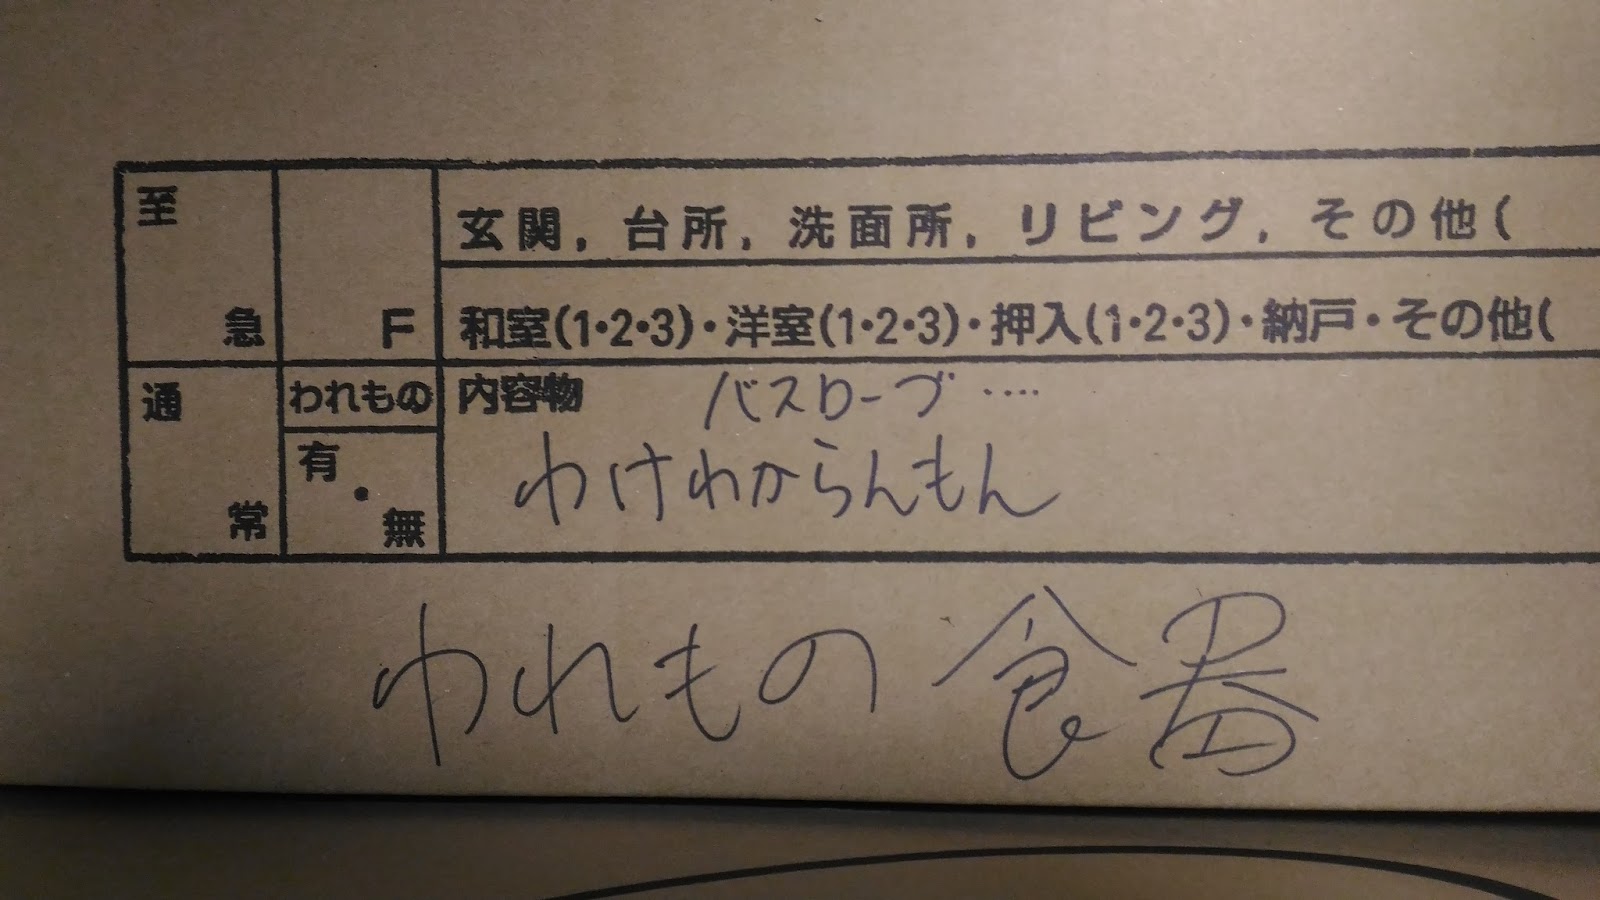 至急 F 玄関, 台所, 洗面所, リビング, その他(
和室(1・2・3)・洋室(1・2・3)・押入(1・2・3)・納戸・その他(
通常 われもの 有・無 内容物 バスローブ ....
わけわからんもん
われもの 食器